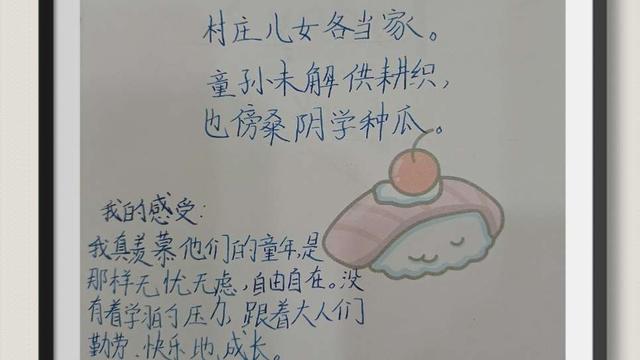 村庄儿女各当家。
童孙未解供耕织，
也傍桑阴学种瓜。
我的感受：
我真羡慕他们的童年，是
那样无忧无虑，自由自在。没
有着学习的压力，跟着大人们
勤劳、快乐地成长。